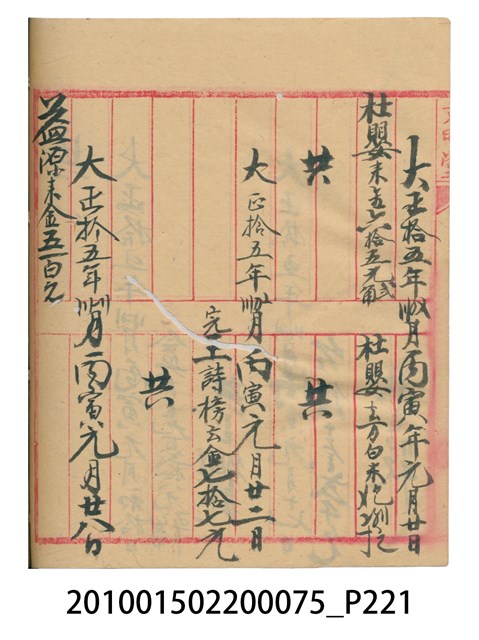 大正拾五年 月丙寅八年元月廿日
杜嬰來 六拾五元 角
杜嬰 方白米
共
共
大正拾五年 月丙寅元月廿二日
完王詩榜去金七拾七元
共
大正拾五年 月丙寅元月廿八日
益源來金五百元
201001502200075_P221